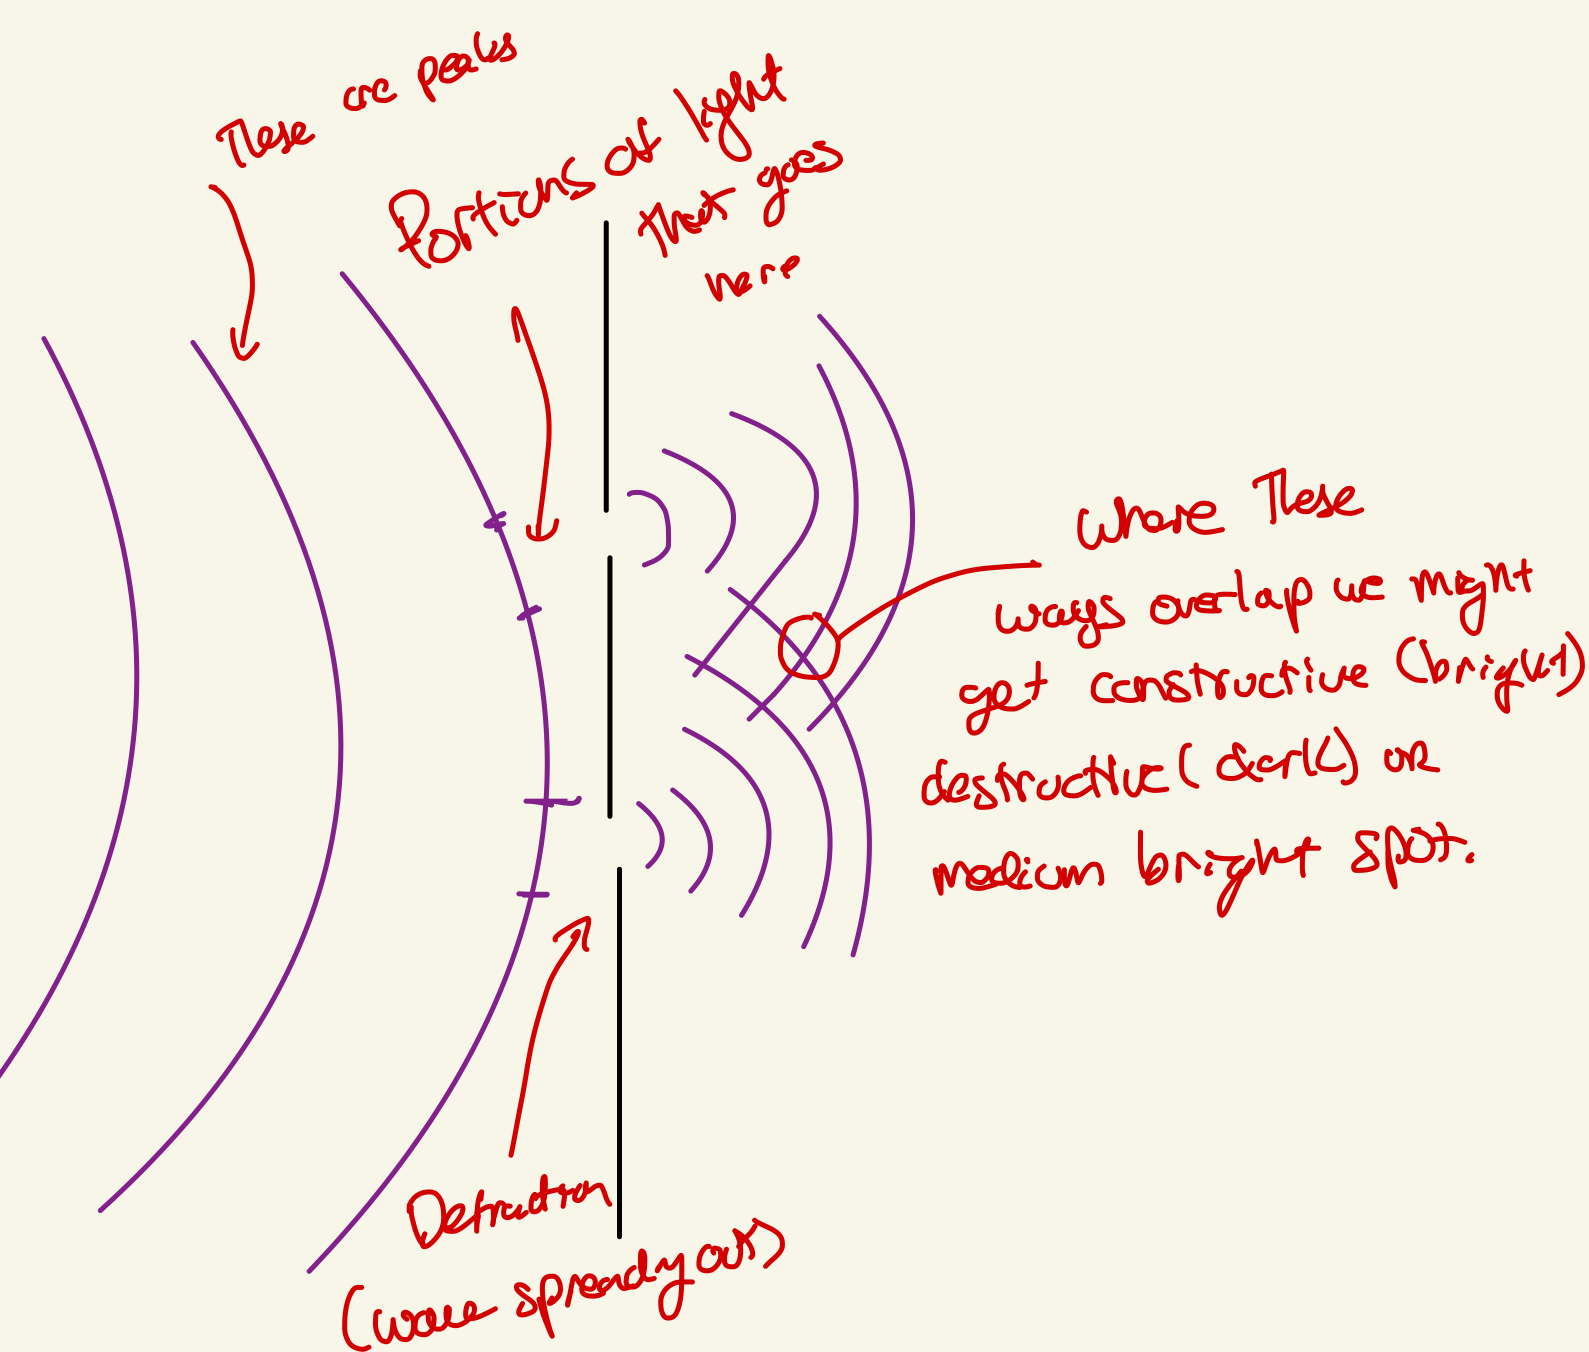 These are peaks
Portions of light
that goes
here
Where These
ways overlap we might
get constructive (bright)
destructive (dark) or
medium bright spot.
Defraction
(wave spready out)